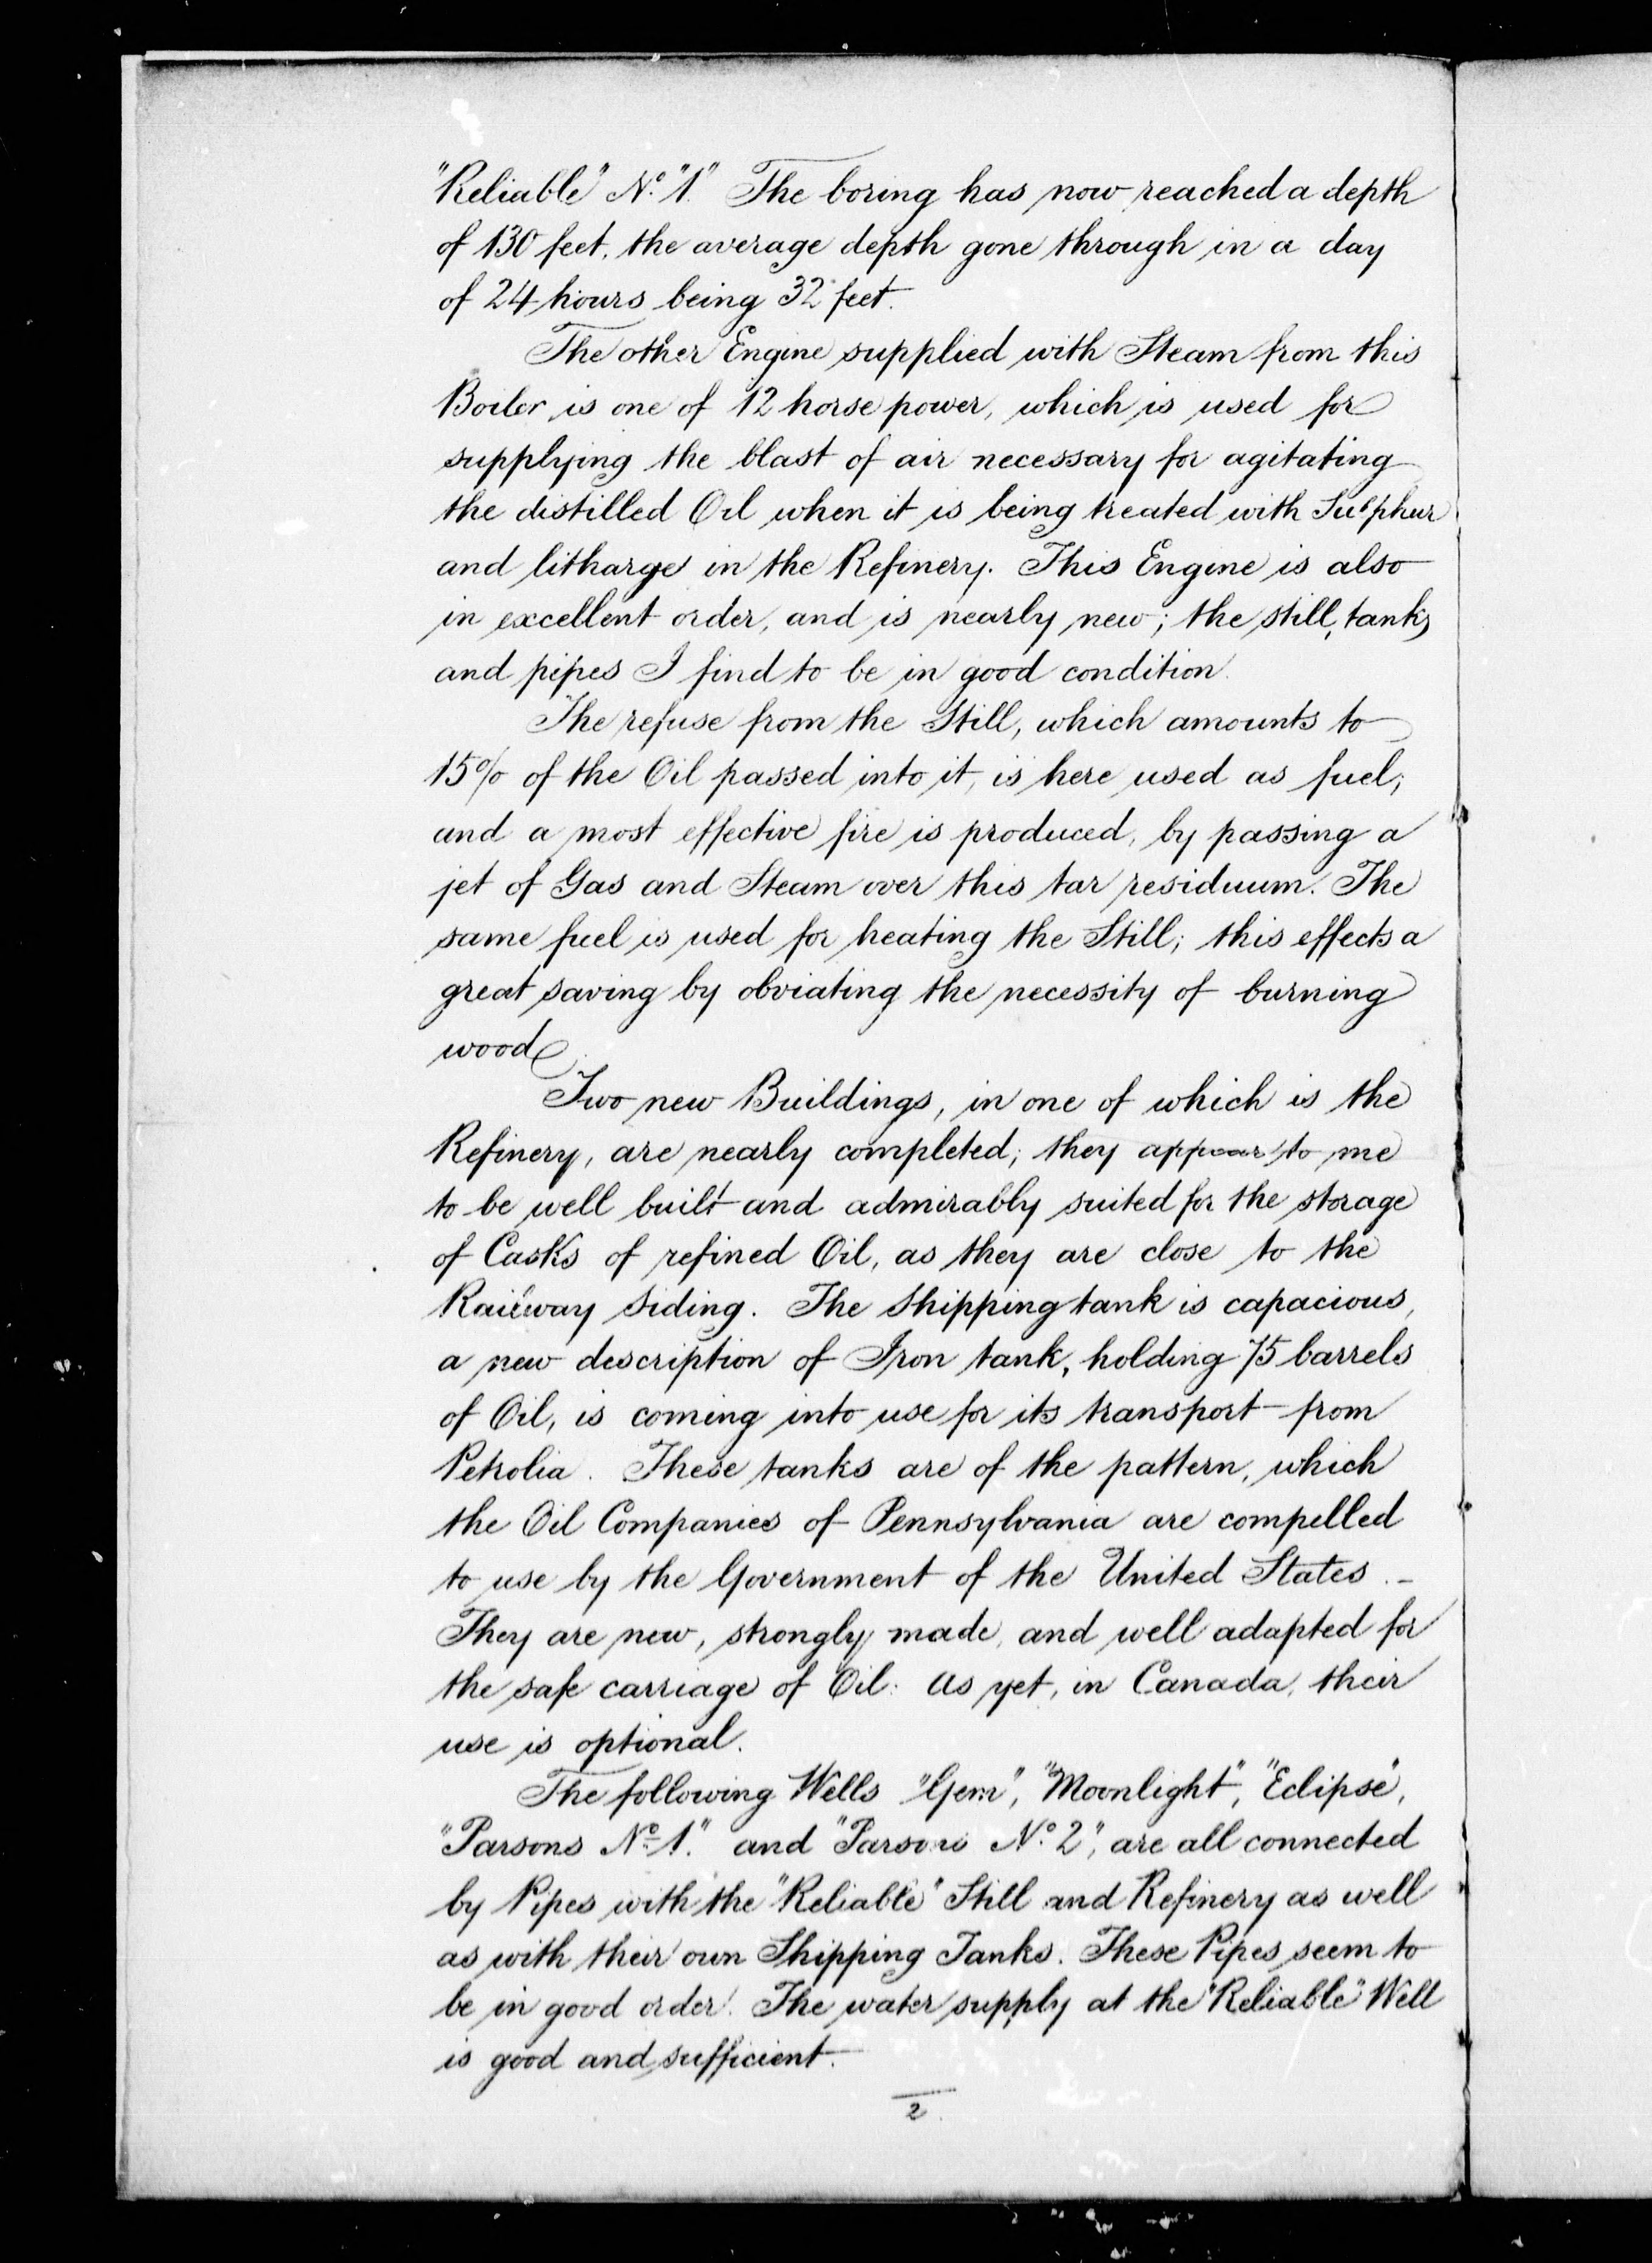 "Reliable" No. "1." The boring has now reached a depth
of 130 feet, the average depth gone through in a day
of 24 hours being 32 feet.
The other Engine supplied with Steam from this
Boiler is one of 12 horse power, which is used for
supplying the blast of air necessary for agitating
the distilled Oil when it is being treated with Sulphur
and litharge in the Refinery. This Engine is also
in excellent order, and is nearly new; the still, tanks
and pipes I find to be in good condition.
The refuse from the Still, which amounts to
15% of the Oil passed into it, is here used as fuel,
and a most effective fire is produced, by passing a
jet of Gas and Steam over this tar residuum. The
same fuel is used for heating the Still; this effects a
great saving by obviating the necessity of burning
wood.
Two new Buildings, in one of which is the
Refinery, are nearly completed; they appear to me
to be well built and admirably suited for the storage
of Casks of refined Oil, as they are close to the
Railway Siding. The Shipping tank is capacious,
a new description of Iron tank, holding 75 barrels
of Oil, is coming into use for its transport from
Petrolia. These tanks are of the pattern, which
the Oil Companies of Pennsylvania are compelled
to use by the Government of the United States. -
They are new, strongly made, and well adapted for
the safe carriage of Oil: as yet, in Canada, their
use is optional.
The following Wells "Gem", "Moonlight", "Eclipse",
"Parsons No. 1." and "Parsons No. 2", are all connected
by Pipes with the "Reliable" Still and Refinery as well
as with their own Shipping Tanks. These Pipes seem to
be in good order. The water supply at the "Reliable" Well
is good and sufficient.
2